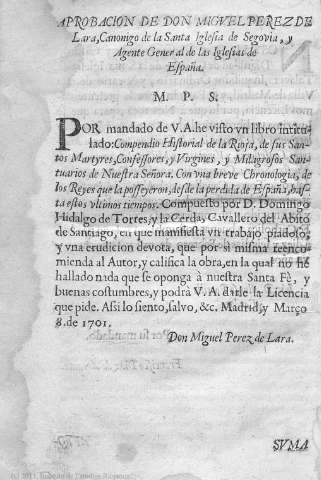 APROBACION DE DON MIGVEL PEREZ DE
Lara, Canonigo de la Santa Iglesia de Segovia, y
Agente General de las Iglesias de
España.
M. P. S.
POR mandado de V.A. he visto vn libro intitu-
lado: Compendio Historial de la Rioja, de sus San-
tos Martyres, Confessores, y Virgines, y Milagrosos San-
tuarios de Nuestra Señora. Con vna breve Chronologia, de
los Reyes que la posseyeron, desde la perdida de España, has-
ta estos vltimos tiempos. Compuesto por D. Domingo
Hidalgo de Torres, y la Cerda, Cavallero del Abito
de Santiago, en que manifiesta vn trabajo piadoso,
y vna erudicion devota, que por si misma reeco-
mienda al Autor, y califica la obra, en la qual no he
hallado nada que se oponga à nuestra Santa Fè, y
buenas costumbres, y podrà V. A. darle la Licencia
que pide. Assi lo siento, salvo, &c. Madrid, y Março
8. de 1701.
Don Miguel Perez de Lara.
SVMA
(c) 2011. Instituto de Estudios Riojanos